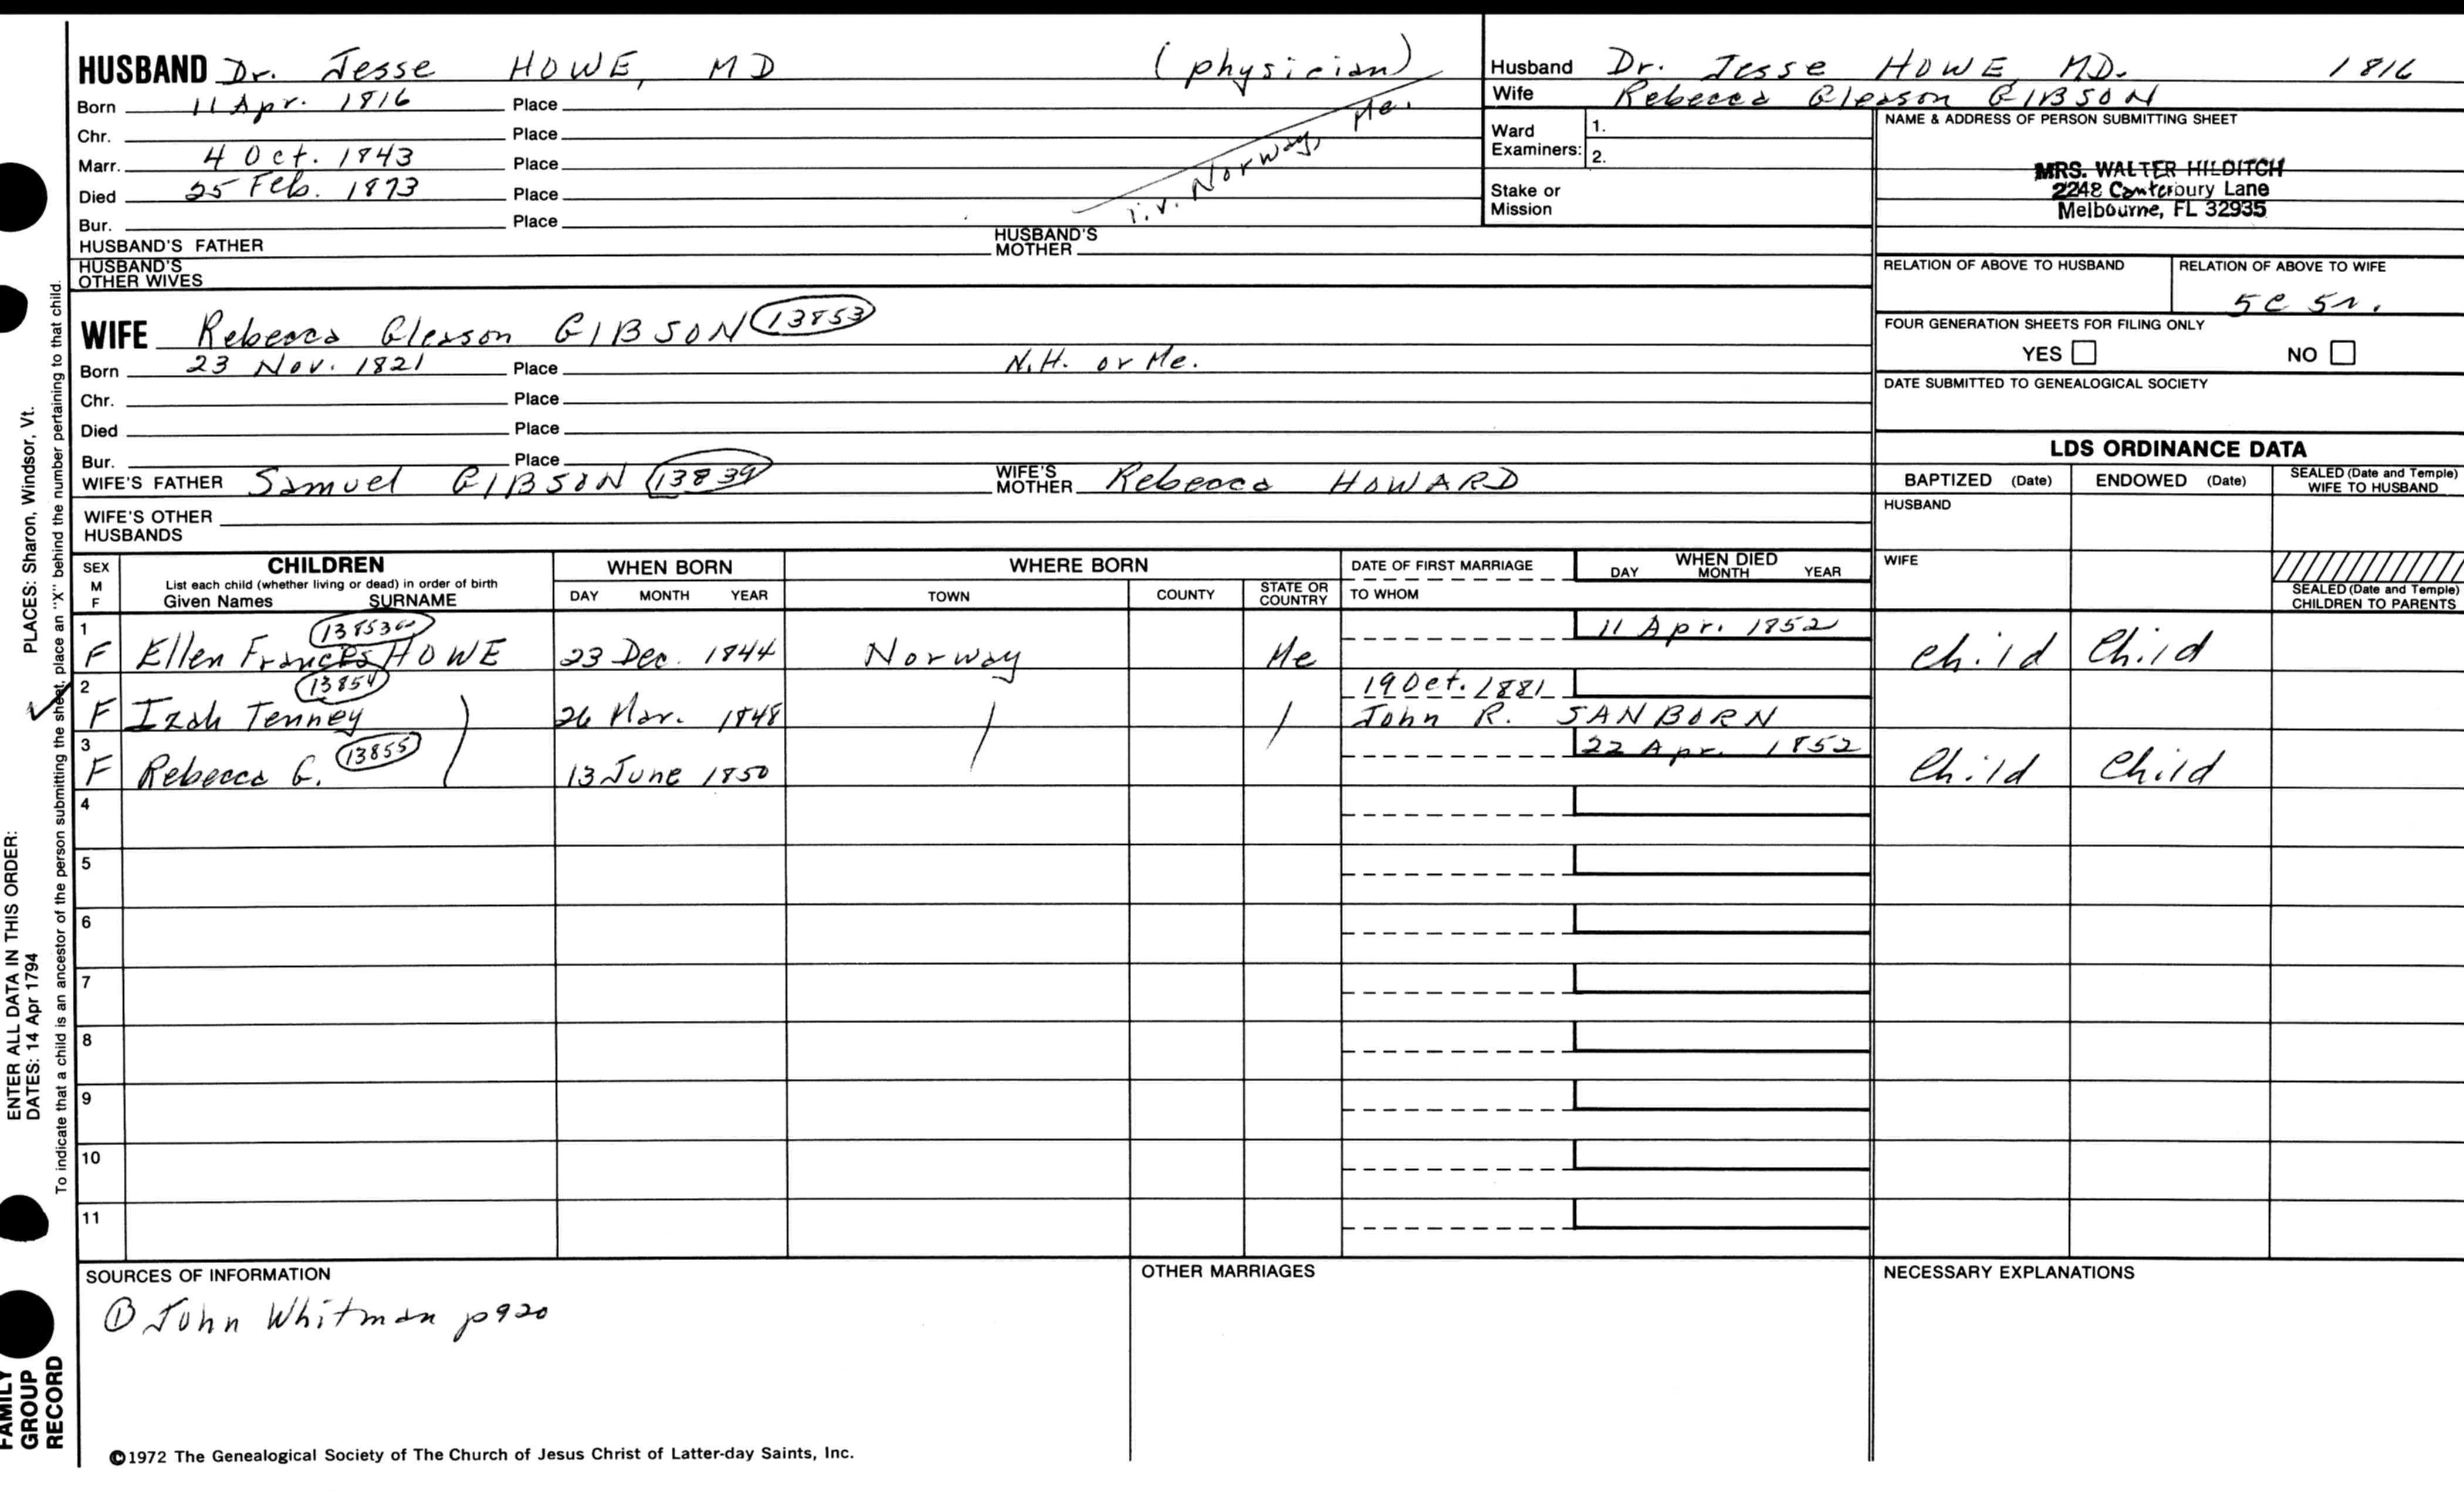 HUSBAND Dr. Jesse HOWE, MD (physician)
Born 11 Apr. 1816 Place
Chr. Place
Marr. 4 Oct. 1843 Place
Died 25 Feb. 1873 Place
liv. Norway, Me.
Bur. Place
HUSBAND'S FATHER HUSBAND'S MOTHER
HUSBAND'S OTHER WIVES
WIFE Rebecca Gleason GIBSON 13853
Born 23 Nov. 1821 Place N.H. or Me.
Chr. Place
Died Place
Bur. Place
WIFE'S FATHER Samuel GIBSON 13839 WIFE'S MOTHER Rebecca HOWARD
WIFE'S OTHER HUSBANDS
Husband Dr. Jesse HOWE, MD. 1816
Wife Rebecca Gleason GIBSON
Ward Examiners: 1.
2.
Stake or Mission
NAME & ADDRESS OF PERSON SUBMITTING SHEET
MRS. WALTER HILDITCH
2248 Canterbury Lane
Melbourne, FL 32935
RELATION OF ABOVE TO HUSBAND RELATION OF ABOVE TO WIFE
5C 5r.
FOUR GENERATION SHEETS FOR FILING ONLY
YES NO
DATE SUBMITTED TO GENEALOGICAL SOCIETY
LDS ORDINANCE DATA
BAPTIZED (Date) ENDOWED (Date) SEALED (Date and Temple) WIFE TO HUSBAND
HUSBAND
WIFE
SEALED (Date and Temple) CHILDREN TO PARENTS
SEX M F CHILDREN WHEN BORN WHERE BORN DATE OF FIRST MARRIAGE WHEN DIED
List each child (whether living or dead) in order of birth
Given Names SURNAME DAY MONTH YEAR TOWN COUNTY STATE OR COUNTRY TO WHOM DAY MONTH YEAR
1 11 Apr. 1852
F Ellen Frances HOWE 23 Dec. 1844 Norway Me Child Child
2 13854 19 Oct. 1881
F Izah Tenney 26 Mar. 1848 John R. SANBORN
3 13855 22 Apr. 1852
F Rebecca G. 13 June 1850 Child Child
4
5
6
7
8
9
10
11
SOURCES OF INFORMATION OTHER MARRIAGES NECESSARY EXPLANATIONS
① John Whitman p920
©1972 The Genealogical Society of The Church of Jesus Christ of Latter-day Saints, Inc.
PLACES: Sharon, Windsor, Vt.
ENTER ALL DATA IN THIS ORDER:
DATES: 14 Apr 1794
To indicate that a child is an ancestor of the person submitting the sheet, place an "X" behind the number pertaining to that child.
FAMILY
GROUP
RECORD